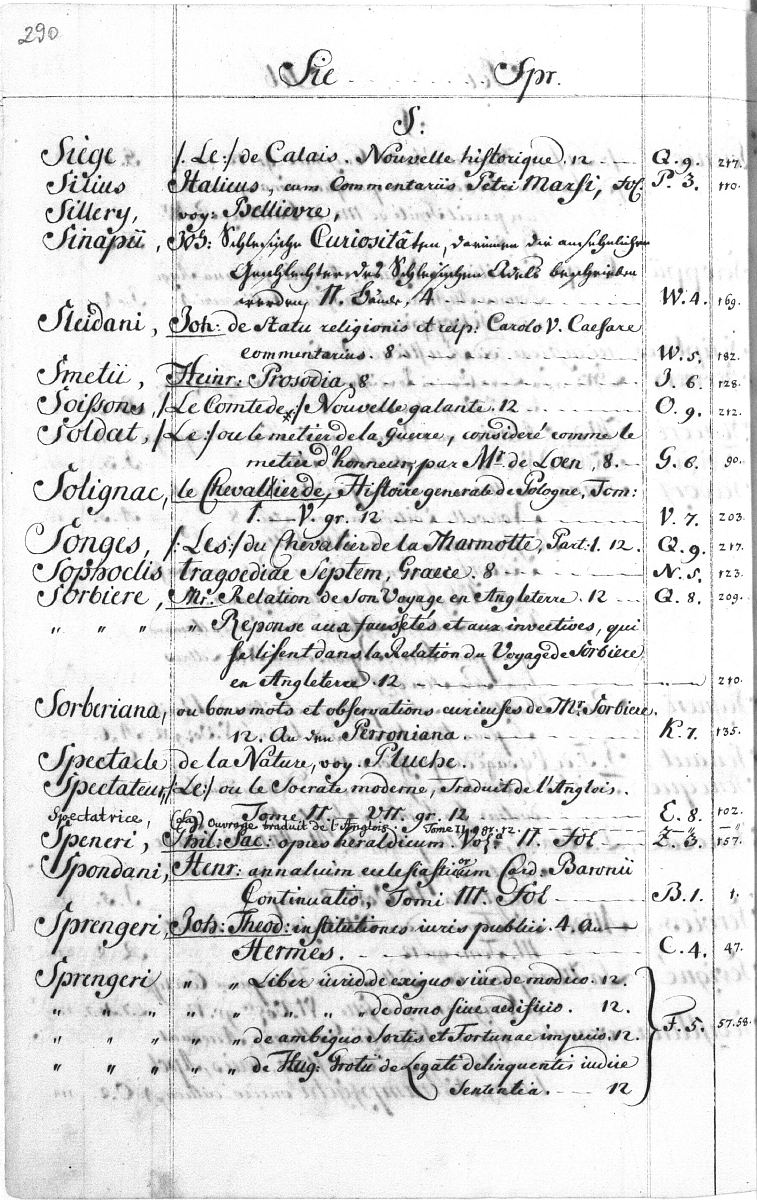 290
Sie - - - - - Spr.
S.
Siège /: Le :/ de Calais. Nouvelle historique. 12 Q. 9. 217.
Silius Italicus, cum Commentariis Petri Marsi, fol. P. 3. 110.
Sillery, voy: Bellievre,
Sinapii, Joh: Schlesische Curiositäten, darinnen die ansehnlichen
Geschlechter des Schlesischen Adels beschrieben
werden, II. Bände, 4 W. 4. 169.
Sleidani, Joh: de Statu religionis et reip. Carolo V. Caesare
commentarius. 8 W. 5. 182.
Smetii, Heinr: Prosodia, 8 J. 6. 128.
Soissons, /Le Comte de :/ Nouvelle galante. 12 O. 9. 212.
Soldat, /Le :/ ou le metier de la Guerre, consideré comme le
metier d'honneur, par Mr. de Loen, 8. G. 6. 90.
Solignac, le Chevallier de, Histoire generale de Pologne, Tom:
I. — V. gr. 12 V. 7. 203.
Songes, /: Les :/ du Chevalier de la Marmotte, Part: 1. 12. Q. 9. 217.
Sophoclis tragoediae Septem, Graece. 8 N. 5. 123.
Sorbiere, Mr. Relation de Son Voyage en Angleterre. 12 Q. 8. 209.
" " " " Reponse aux faussetés et aux invectives, qui
se lisent dans la Relation du Voyage de Sorbiere
en Angleterre. 12 210.
Sorberiana, ou bons mots et observations curieuses de Mr. Sorbiere.
12. An den Perroniana. K. 7. 135.
Spectacle de la Nature, voy. Pluche.
Spectateur, /: Le :/ ou le Socrate moderne, Traduit de l'Anglois.
Tome II — VII. gr. 12 E. 8. 102.
Spectatrice, (La) Ouvrage traduit de l'Anglois. Tome II gr. 12 " "
Speneri, Phil: Jac: opus heraldicum. Vol: II. Fol Z. 3. 157.
Spondani, Henr: annalium ecclesiasticorum Card: Baronii
Continuatio, Tomi III. Fol B. 1. 1.
Sprengeri, Joh: Theod: institutiones iuris publici. 4. An
Hermes. C. 4. 47.
Sprengeri " " Liber iurid. de exiguo siue de modico. 12.
" " " " " " " de domo siue aedificio. 12. F. 5. 57.58.
" " " " " de ambiguo Sortis et Fortunae impuis. 12.
" " " " " de Hug: Grotii de Legati delinquentis iudice
Sententia. 12